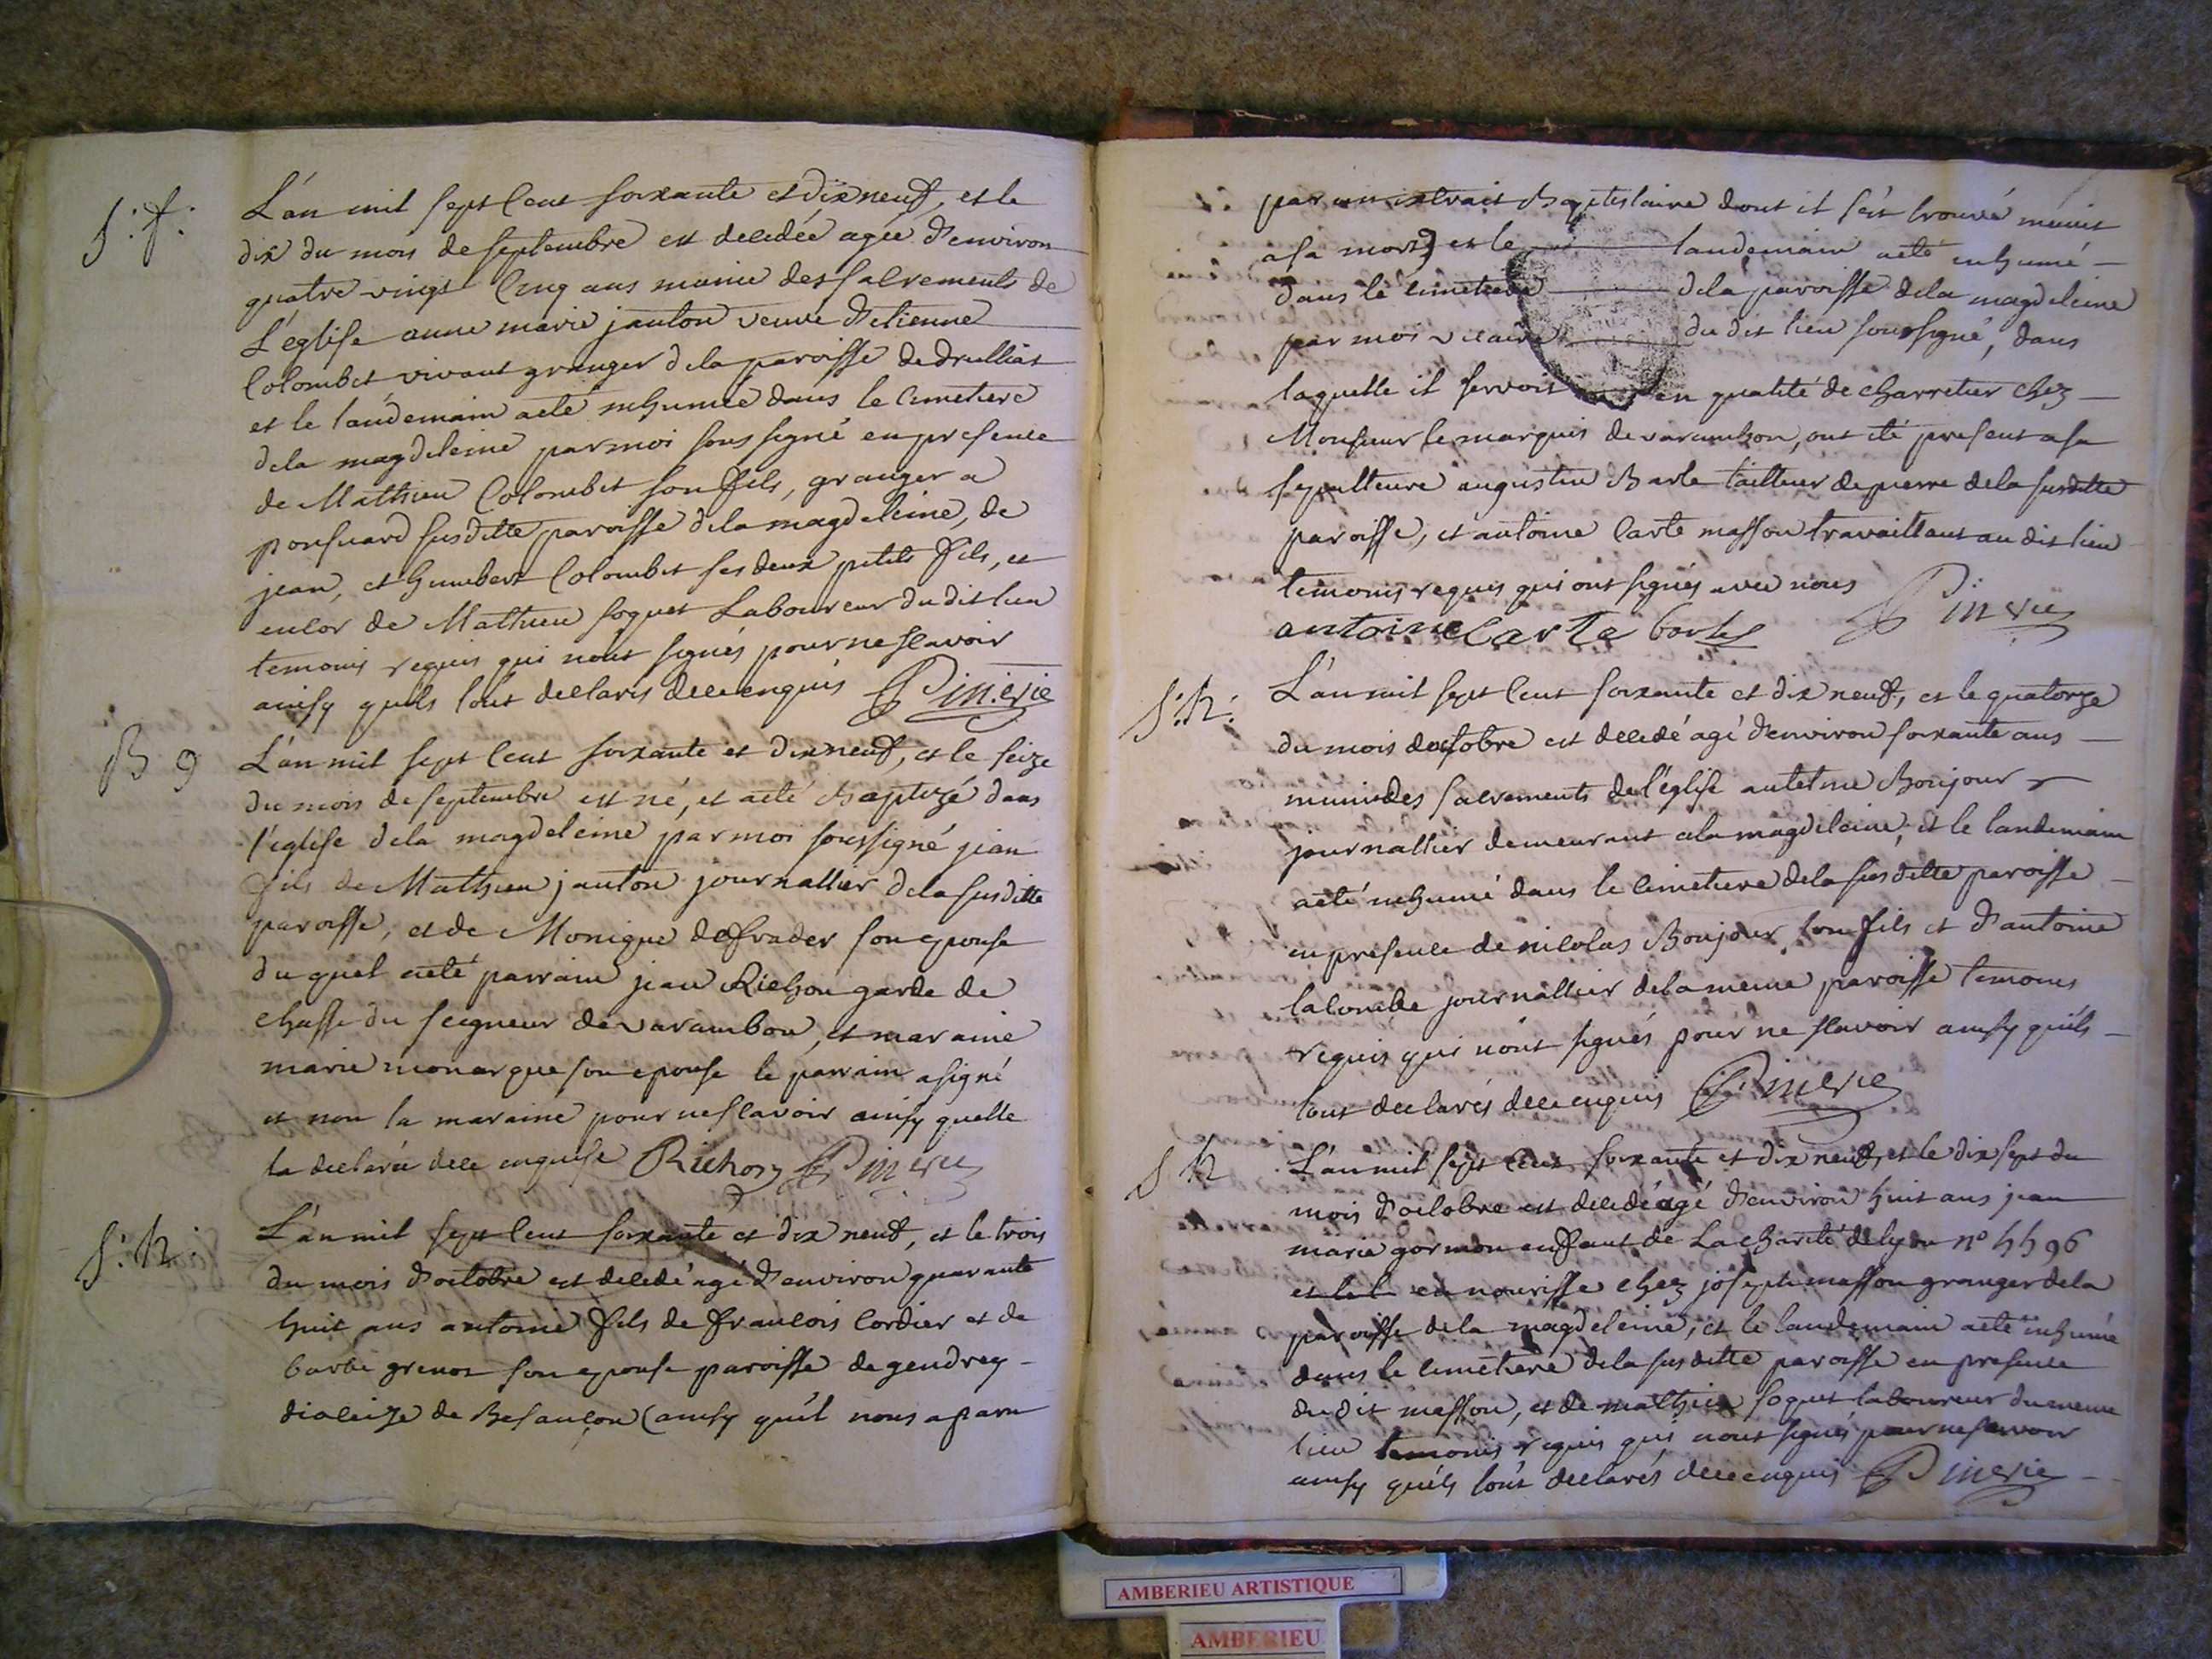 S: f:
L'an mil sept cent soixante et dix neuf, et le
dix du mois de septembre est decedée agée d'environ
quatre vingt cinq ans munie des sacrements de
L'église anne marie janton veuve d'etienne
Colombet vivant granger de la paroisse de druillat
et le landemain a eté inhumée dans le cimetiere
de la magdeleine par moi sous signé en presence
de Mathieu Colombet son fils, granger a
ponsuard susditte paroisse de la magdeleine, de
jean, et humbert Colombet ses deux petits fils, et
encor de Mathieu soquet Laboureur du dit lieu
temoins requis qui n'ont signés pour ne scavoir
ainsy qu'ils l'ont declarés de ce enquis Pinerie
B g
L'an mil sept cent soixante et dix neuf, et le seize
du mois de septembre est né, et a eté Baptizé dans
l'eglise de la magdeleine par moi soussigné jean
fils de Mathieu janton journallier de la susditte
paroisse, et de Monique defrader son epouse
du quel a eté parrain jean Richon garde de
chasse du seigneur de varambon, et maraine
marie monarque son epouse le parrain a signé
et non la maraine pour ne scavoir ainsy quelle
la declarée de ce enquise Richon Pinerie
S: h:
L'an mil sept cent soixante et dix neuf, et le trois
du mois d'octobre est decedé agé d'environ quarante
huit ans antoine fils de francois Cordier et de
barbe grenot son epouse paroisse de gendrey
dioceize de Besançon (ainsy qu'il nous a paru
par un extrait Baptistaire dont il s'est trouvé munit
a sa mort) et le landemain a eté inhumé
dans le cimetiere de la paroisse de la magdeleine
par moi vicaire du dit lieu soussigné, dans
laquelle il servoit en qualité de charretier chez
Monsieur le marquis de varambon, ont eté present a sa
sepulteure augustin Barle tailleur de pierre de la susditte
paroisse, et antoine Carte masson travaillant au dit lieu
temoins requis qui ont signés avec nous
antoine Carte Pinerie
S: h:
L'an mil sept cent soixante et dix neuf, et le quatorze
du mois doctobre est decedé agé d'environ soixante ans
munie des sacrements de l'église antelme Bonjour
journallier demeurant a la magdeleine, et le landemain
a eté inhumé dans le cimetiere de la susditte paroisse
en presence de nicolas Bonjour son fils et d'antoine
lacombe journallier de la meme paroisse temoins
requis qui n'ont signés pour ne scavoir ainsy qu'ils
l'ont declarés de ce enquis Pinerie
S h
L'an mil sept cent soixante et dix neuf, et le dix sept du
mois d'octobre est decedé agé d'environ huit ans jean
marie gormon enfant de La charité de lyon n° hh96
en nourisse chez joseph masson granger de la
paroisse de la magdeleine, et le landemain a eté inhumé
dans le cimetiere de la susditte paroisse en presence
du dit masson, et de mathieu soquet laboureur du meme
lieu temoins requis qui n'ont signés pour ne scavoir
ainsy qu'ils l'ont declarés de ce enquis Pinerie
AMBERIEU ARTISTIQUE
AMBERIEU